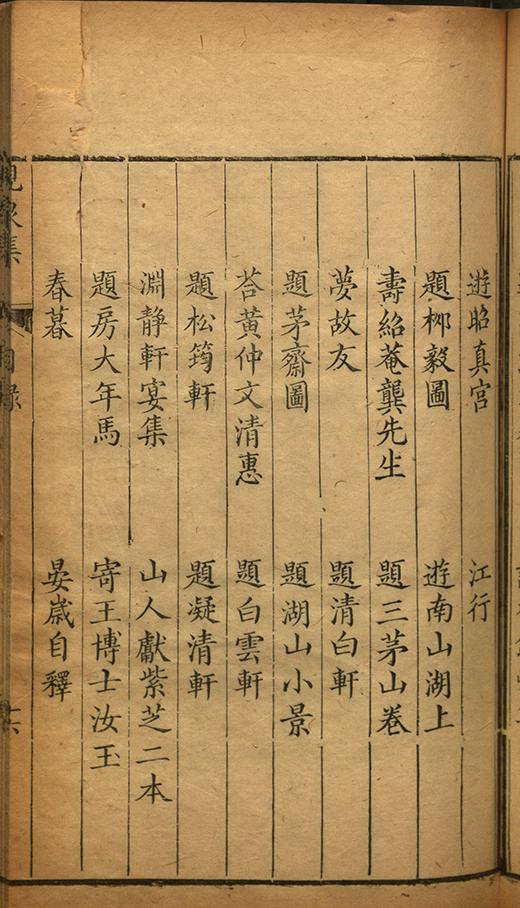 遊昭真宮　江行
題桺毅圖　遊南山湖上
壽紹菴龔先生　題三茅山卷
夢故友　題清白軒
題茅齋圖　題湖山小景
荅黄仲文清惠　題白雲軒
題松筠軒　題凝清軒
淵静軒宴集　山人獻紫芝二本
題房大年馬　寄王博士汝玉
春暮　晏歲自釋